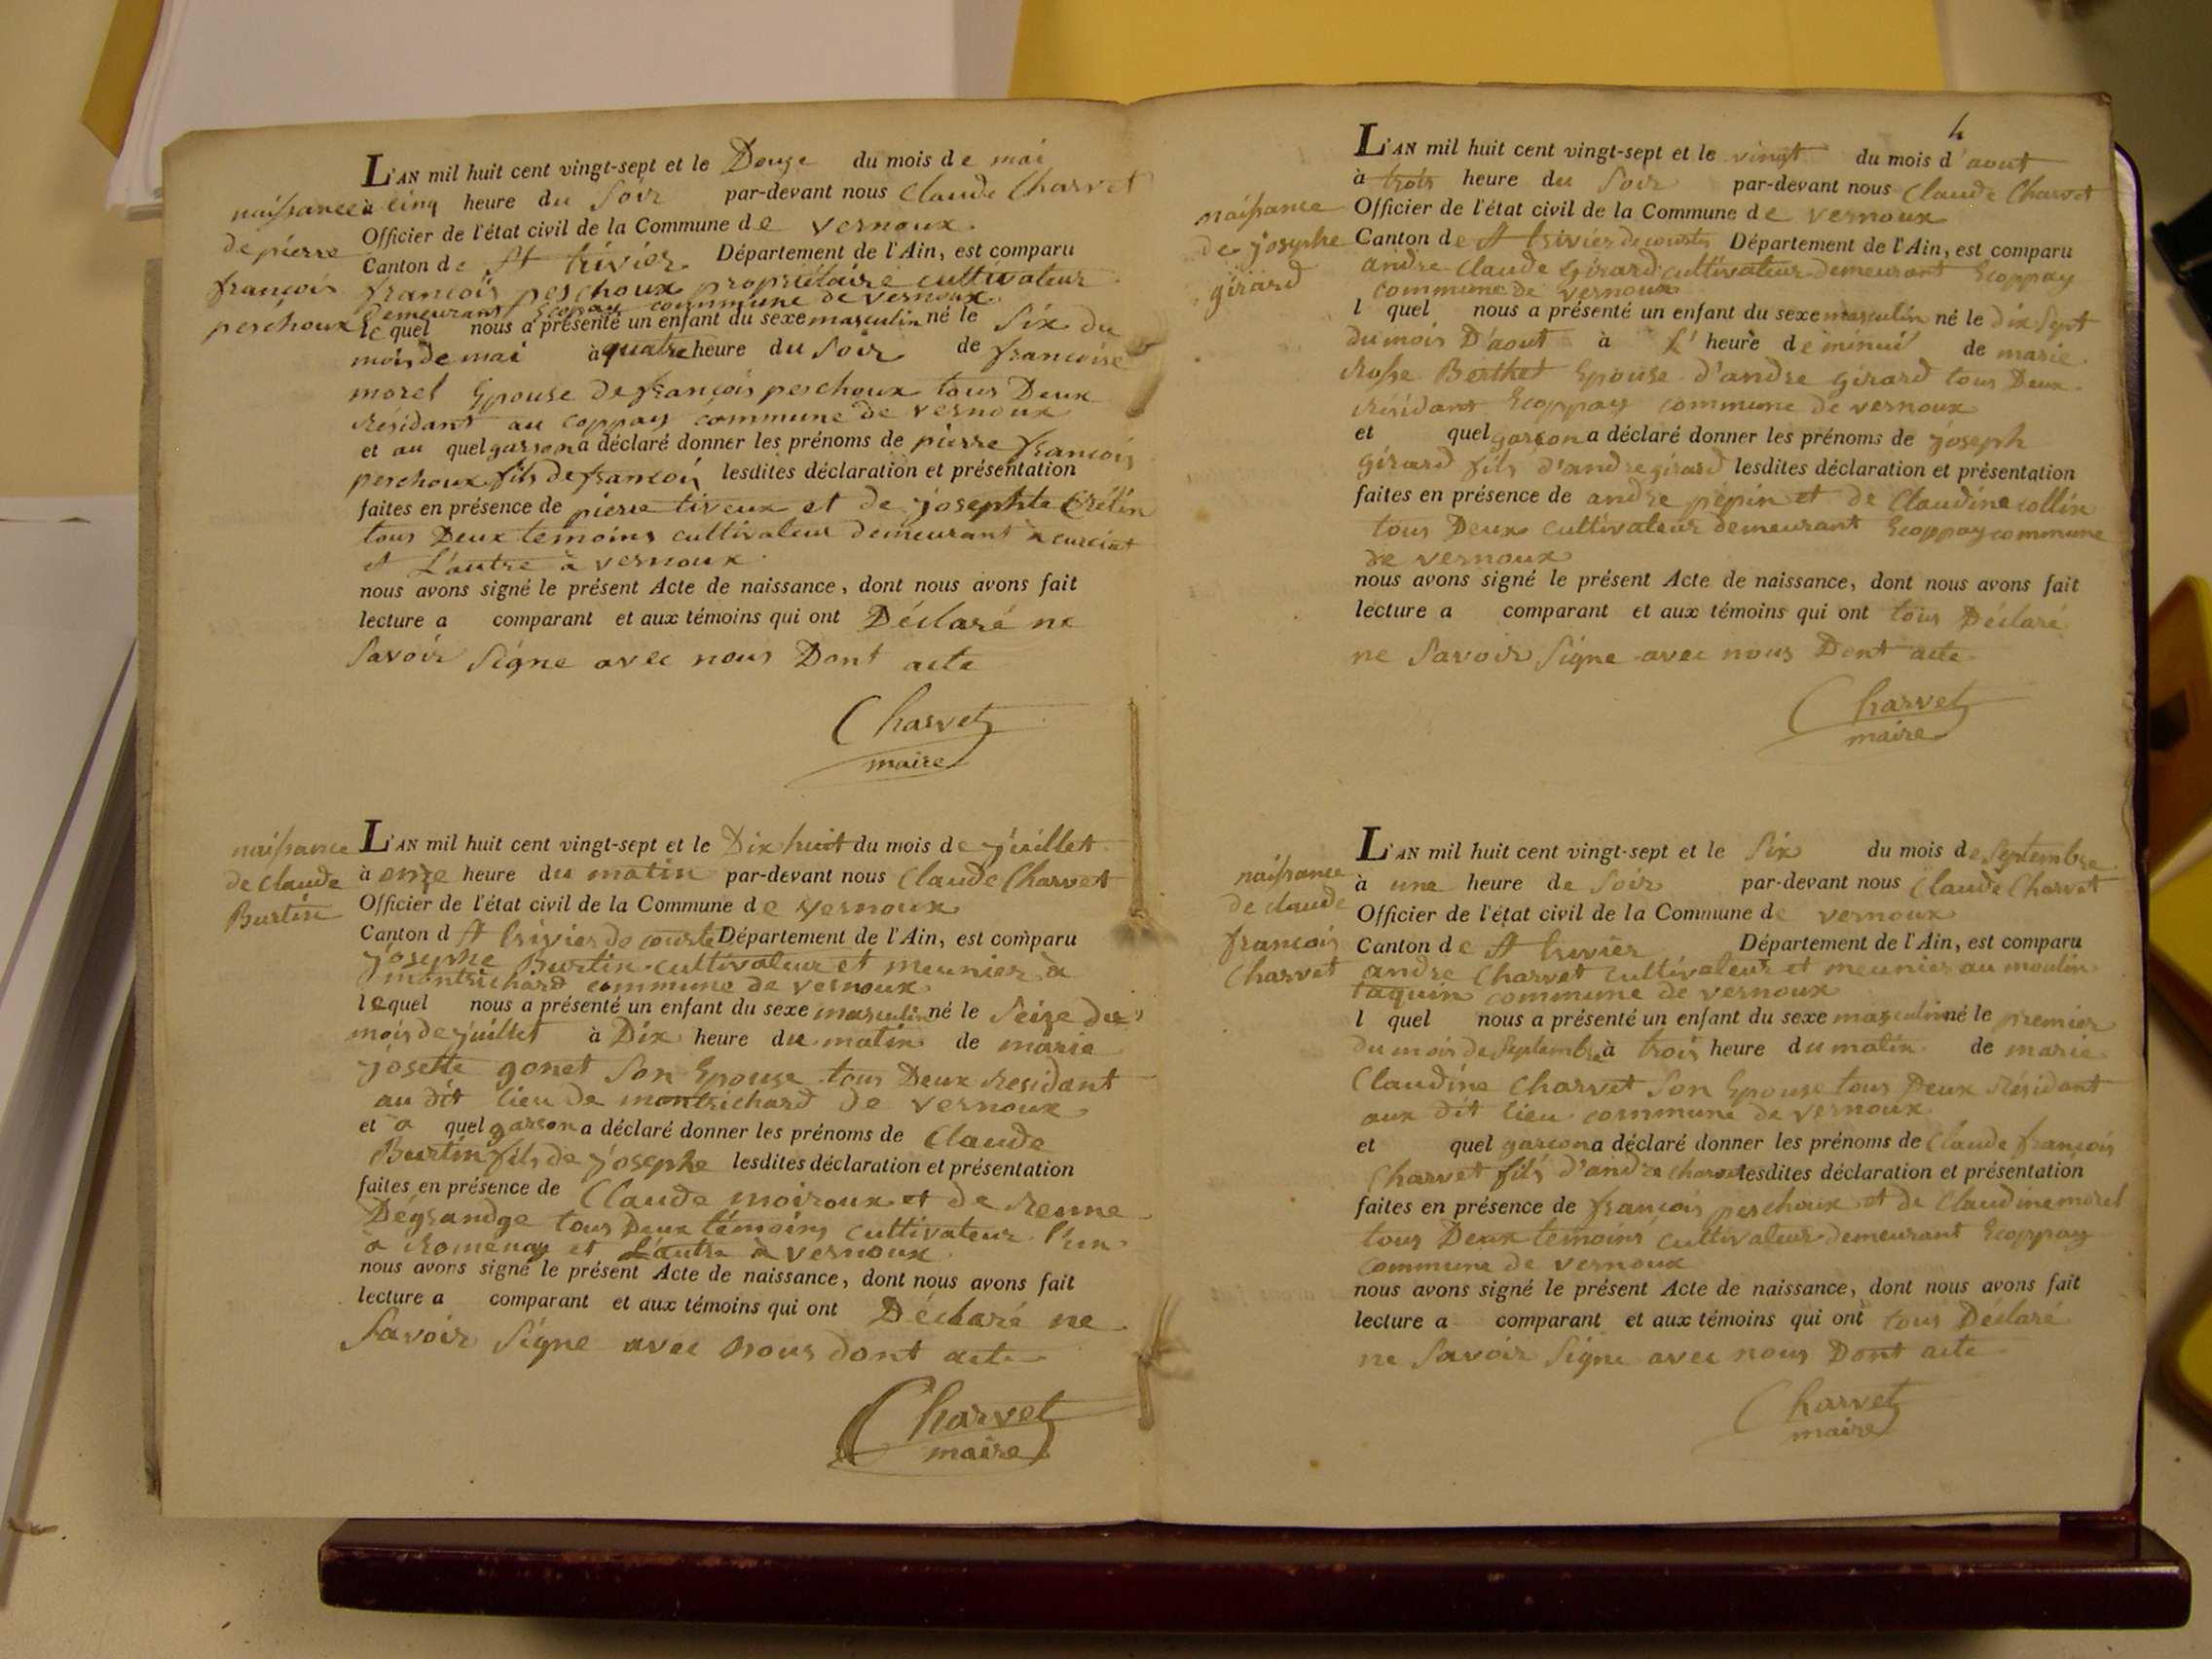 L'AN mil huit cent vingt-sept et le Douze du mois de mai
naissance à cinq heure du Soir par-devant nous Claude Charvet
Officier de l'état civil de la Commune de vernoux
de pierre Canton de St trivier Département de l'Ain, est comparu
francois francois peschoux propriétaire cultivateur
demeurant Ecopay commune de vernoux
peschoux le quel nous a présenté un enfant du sexe masculin né le Six du
mois de mai à quatre heure du Soir de francoise
morel Epouse de françois peschoux tous Deux
résidant au coppay commune de vernoux
et au quel garson a déclaré donner les prénoms de pierre francois
peschoux fils de francois lesdites déclaration et présentation
faites en présence de pierre tiveux et de josephte Crétin
tous Deux temoins cultivateur demeurant a curciat
et L'autre à vernoux
nous avons signé le présent Acte de naissance, dont nous avons fait
lecture a comparant et aux témoins qui ont Déclaré ne
Savoir Signe avec nous Dont acte
Charvet
maire
naissance L'AN mil huit cent vingt-sept et le Dix huit du mois de juillet
de claude à onze heure du matin par-devant nous Claude Charvet
Burtin Officier de l'état civil de la Commune de vernoux
Canton d St trivier de courte Département de l'Ain, est comparu
josephe Burtin cultivateur et meunier à
montrichard commune de vernoux
lequel nous a présenté un enfant du sexe masculin né le Seize du
mois de juillet à Dix heure du matin de marie
josette gonet Son Epouse tous Deux résidant
au dit lieu de montrichard de vernoux
et a quel garson a déclaré donner les prénoms de Claude
Burtin fils de josephe lesdites déclaration et présentation
faites en présence de Claude moiroux et de renne
Dégrandge tous Deux témoins cultivateur l'un
a romenay et L'autre à vernoux
nous avons signé le présent Acte de naissance, dont nous avons fait
lecture a comparant et aux témoins qui ont Déclaré ne
Savoir Signe avec nous dont acte
Charvet
maire
4
L'AN mil huit cent vingt-sept et le vingt du mois d'aout
à trois heure du Soir par-devant nous Claude Charvet
naissance Officier de l'état civil de la Commune de vernoux
de josephe Canton de St trivier de courtes Département de l'Ain, est comparu
girard andre claude girard cultivateur demeurant Ecoppay
commune de vernoux
l quel nous a présenté un enfant du sexe masculin né le dix Sept
du mois D'aout à L' heure de minui de marie
rosse Berthet Epouse d'andre girard tous Deux
résidant Ecoppay commune de vernoux
et quel garson a déclaré donner les prénoms de joseph
girard fils d'andre girard lesdites déclaration et présentation
faites en présence de andre pepin et de Claudine collin
tous Deux cultivateur demeurant Ecoppay commune
de vernoux
nous avons signé le présent Acte de naissance, dont nous avons fait
lecture a comparant et aux témoins qui ont tous Déclaré
ne Savoir Signe avec nous Dont acte
Charvet
maire
L'AN mil huit cent vingt-sept et le Six du mois de Septembre
naissance à une heure de Soir par-devant nous Claude Charvet
de claude Officier de l'état civil de la Commune de vernoux
francois Canton de St trivier Département de l'Ain, est comparu
Charvet andre Charvet cultivateur et meunier au moulin
taquin commune de vernoux
l quel nous a présenté un enfant du sexe masculin né le premier
du mois de Septembre à trois heure du matin de marie
Claudine Charvet Son Epouse tous Deux résidant
aux dit lieu commune de vernoux
et quel garcon a déclaré donner les prénoms de Claude françois
Charvet fils d'andre charvet lesdites déclaration et présentation
faites en présence de françois peschoux et de Claudine morel
tous Deux temoins cultivateur demeurant Ecoppay
Commune de vernoux
nous avons signé le présent Acte de naissance, dont nous avons fait
lecture a comparant et aux témoins qui ont tous Déclaré
ne Savoir Signe avec nous Dont acte
Charvet
maire